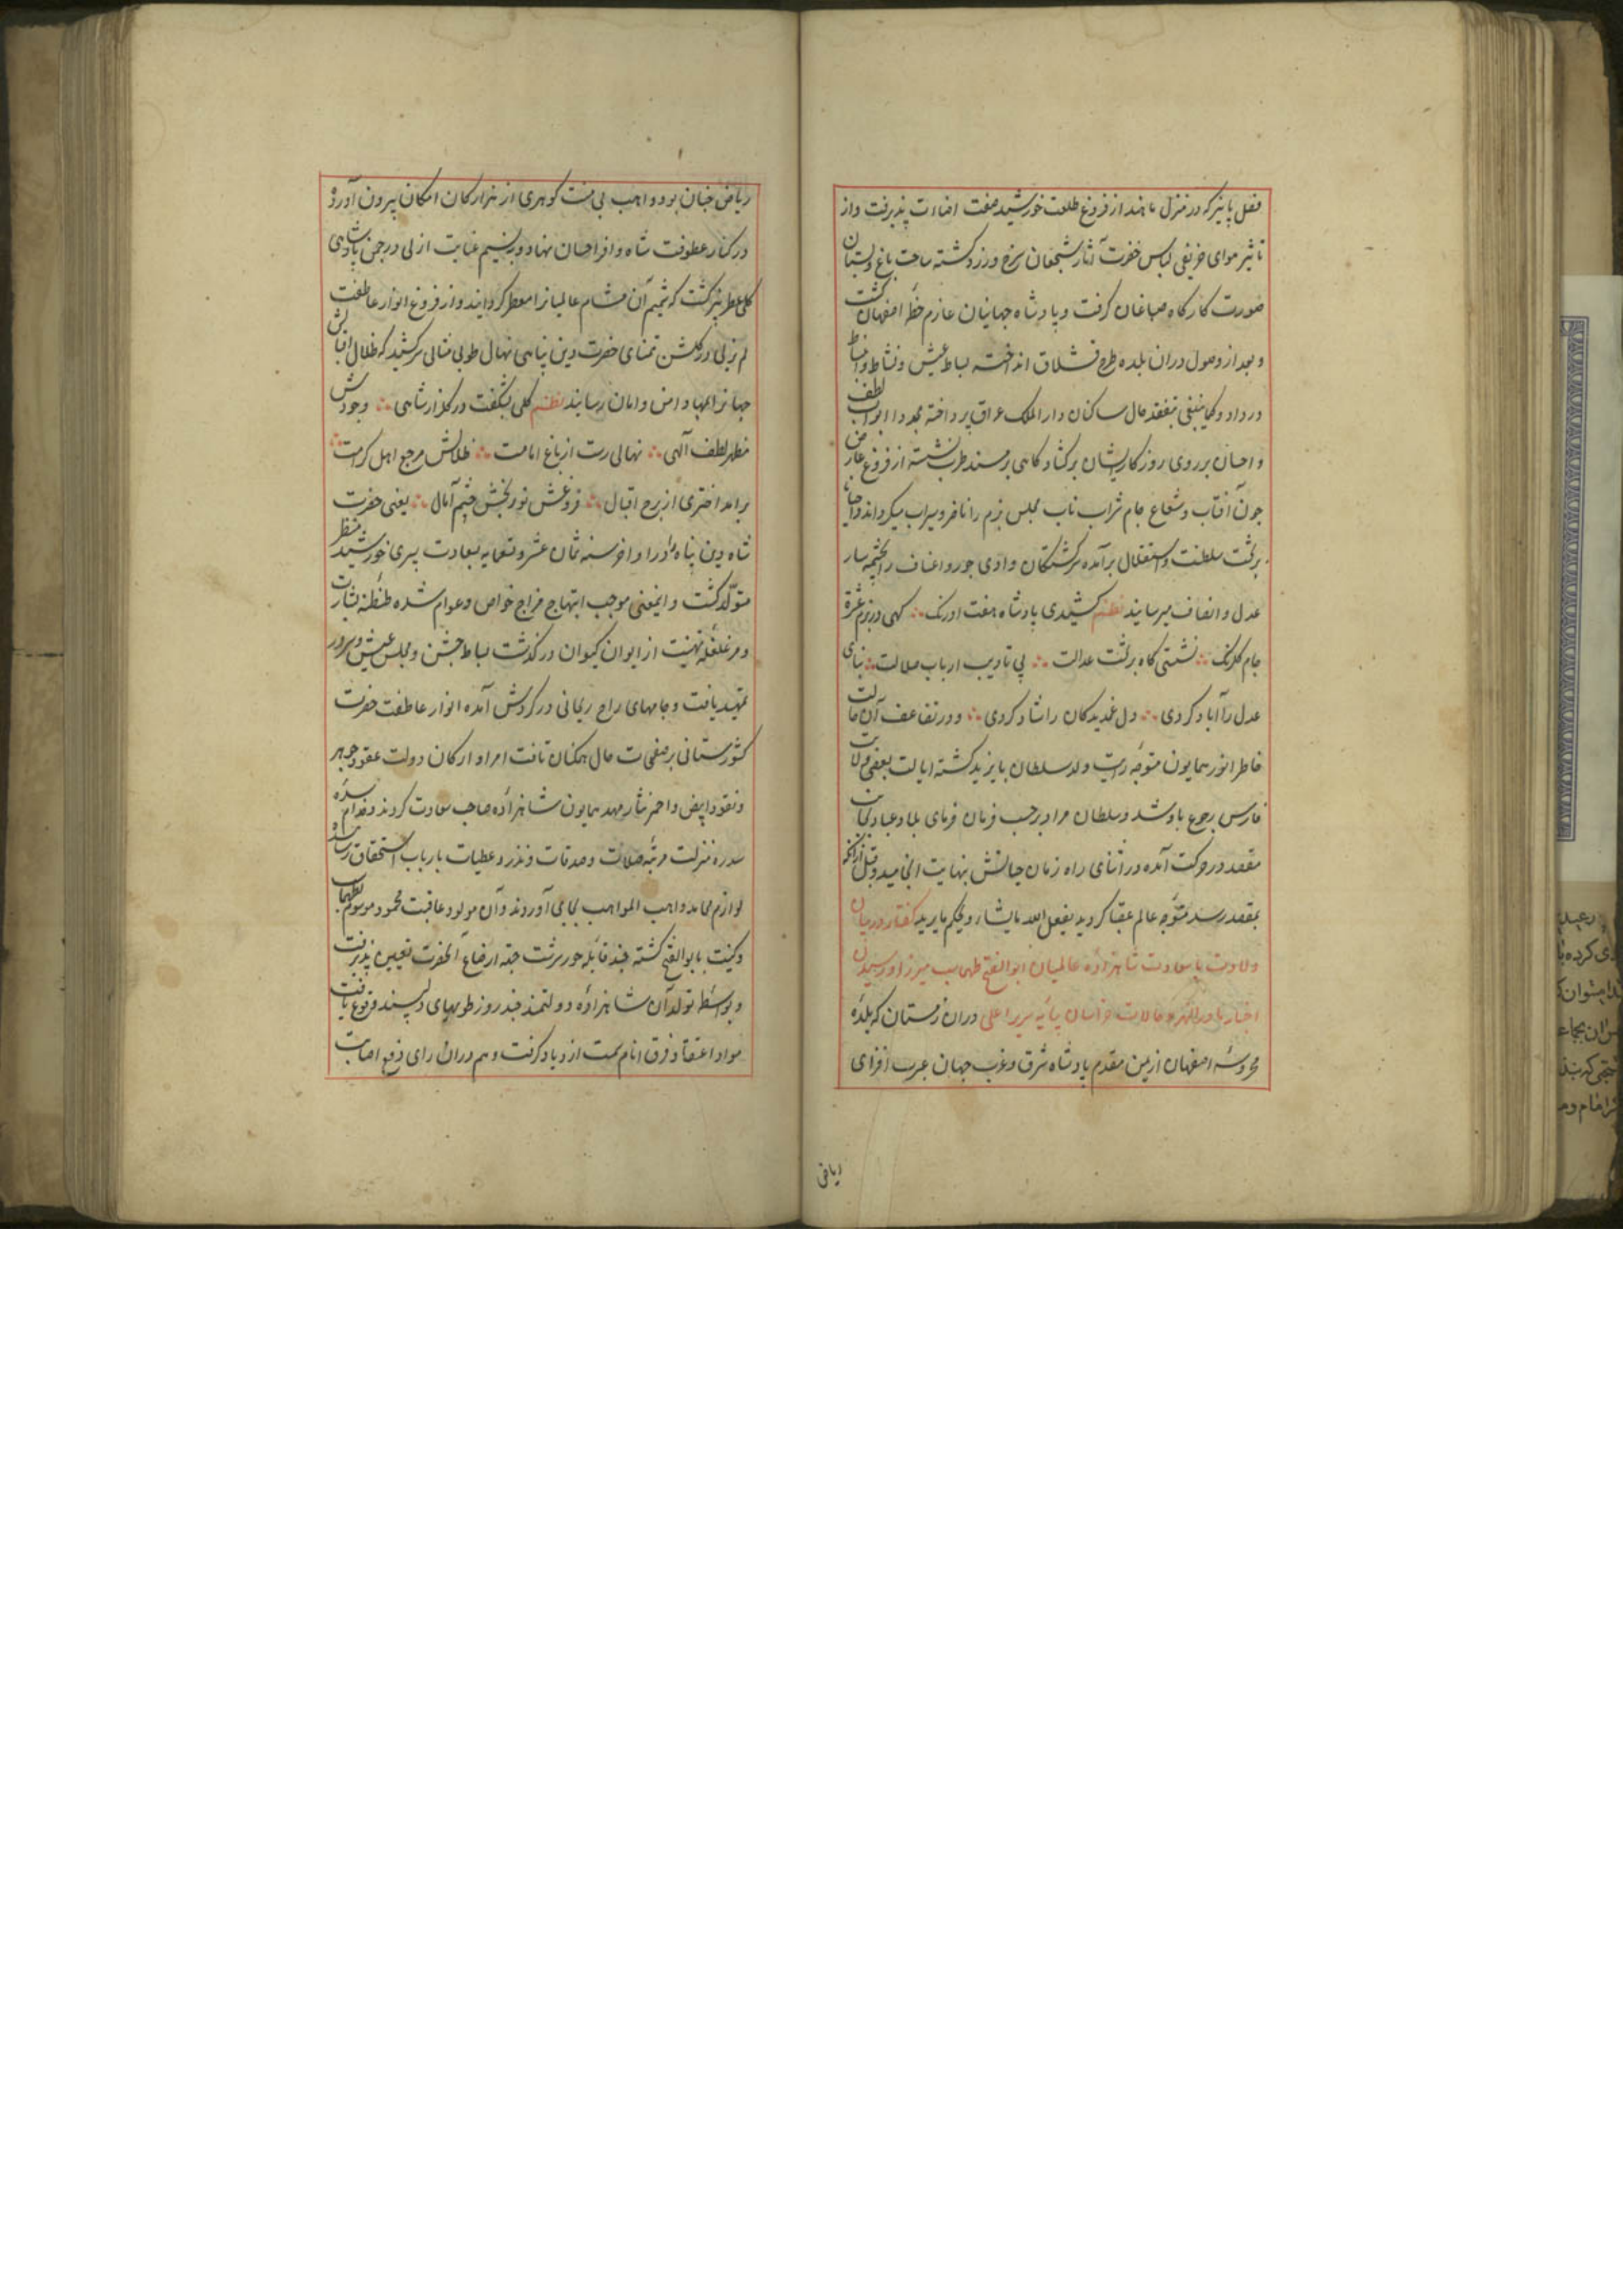 فصل پاییز که در منزل ماهند از فروغ طلعت خورشید صفت اضاءت پذیرفت و از
تاثیر هوای خریفی لباس خضرت آثار شجعان سرخ و زرد کشته ساحت باغ و بستان
صورت کارکاه صباغان کرفت و پادشاه جهانیان عازم خطهٔ اصفهان کشت
و بعد از وصول دران بلده طرح قشلاق انداخته بساط عیش و نشاط و انبساط
در داد و کما ینبغی بتفقد حال ساکنان دار الملک عراق پرداخته مجددا ابواب لطف
و احسان بر روی روزکار ایشان برکشاد کاهی بر مسند طرب نشسته از فروغ عارض
چون آفتاب و شعاع جام شراب ناب مجلس بزم را
بر تخت سلطنت و استقلال برآمده سرکشتکان وادی جور و اعتساف را بچشمه سار
عدل و انصاف میرسانید نظم کشیدی پادشاه هفت اورنک کهی در بزم عشرة
جام کلرنک نشستی کاه بر تخت عدالت پی تادیب ارباب ضلالت بنای
عدل را آباد کردی دل غمدیدکان را شاد کردی و در تضاعف آن حالت
خاطر انور همایون متوجه تربیت ولد سلطان بایزید کشته ایالت بعضی ولایات
فارس رجوع باو شد و سلطان مراد بر حسب فرمان فرمای بلاد و عباد بجانب
مقصد در حرکت آمده در اثنای راه زمان حیاتش بنهایت انجامید و قبل ازانکه
بمقصد رسد متوجه عالم عقبا کردید یفعل الله ما یشاء و یحکم ما یرید کفتار در بیان
ولادت با سعادت شاهزادهٔ عالمیان ابو الفتح طهماسب میرزا و رسیدن
اخبار ماوراالنهر و حالات خراسان بپایهٔ سریر اعلی دران زمستان که بلدهٔ
محروسهٔ اصفهان از یمن مقدم پادشاه شرق و غرب جهان غیرت افزای
ریاض جنان بود واهب بی منت کوهری از هزار کان امکان بیرون آورد
در کنار عطوفت شاه وافر احسان نهاد و بر نسیم عنایت ازلی در چمن پادشاهی
کلی عطر بیز کشت که شمیم آن مشام عالمیانرا معطر کردانید و از فروغ انوار عاطفت
لم یزلی در کلشن تمنای حضرت دین پناهی نهال طوبی مثالی سرکشید که ظلال اقبالش
جهانرا بمهاد امن و امان رسانید نظم کلی بشکفت در کلزار شاهی وجودش
مظهر لطف الهی نهالی رست از باغ امامت ظلالش مرجع اهل کرامت
برامد اختری از برج اقبال فروغش نور بخش چشم آمال یعنی حضرت
شاه دین پناه را در اواخر سنه ثمان عشر و تسعمایه بسعادت پسری خورشید منظر
متولد کشت و اینمعنی موجب ابتهاج مزاج خواص و عوام شده طنطنه بشارت
و غلغله تهنیت از ایوان کیوان در کذشت بساط جشن و مجلس عیش و سرور
تمهید یافت و جامهای راح ریحانی در کردش آمده انوار عاطفت حضرت
کشورستانی بر صفحات حال همکنان تافت امرا و ارکان دولت عقود جوهر
و نقود ابیض و احمر نثار مهد همایون شاهزادهٔ صاحب سعادت کردند و خدام سدهٔ
سدره منزلت مرتبه صلات و صدقات و نذر و عطیات بارباب استحقاق رسانیده
لوازم محامد واهب المواهب بجای آوردند و آن مولود عاقبت محمود موسوم بطهماسب
و کنیت بابو الفتح کشته چند قابله حور سرشت جهة ارضاع آنحضرت تعیین پذیرفت
و بواسطه تولد آن شاهزادهٔ دولتمند چند روز طویهای دلپسند وقوع یافت
مواد اعتقاد فرق انام سمت ازدیاد کرفت و هم دران رای اصابت